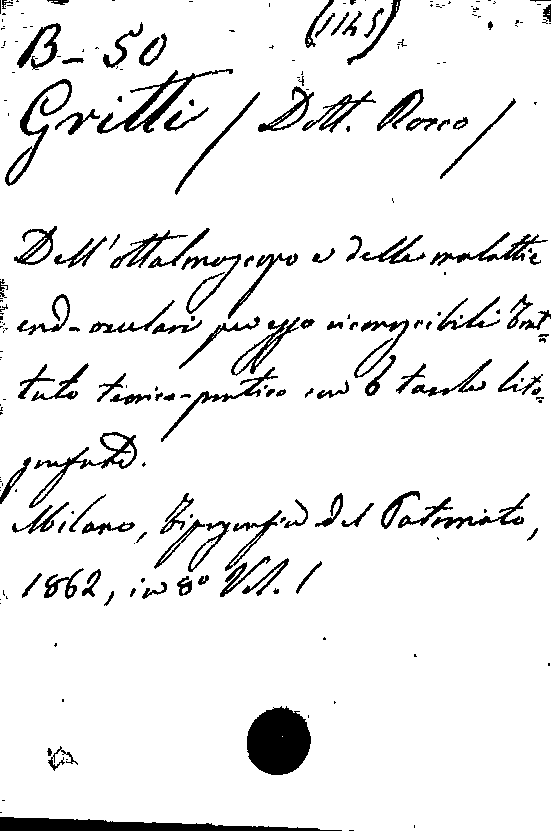 (1145)
B-50
Gritti / Dott. Rocco /
Dell'ottalmoscopo e delle malattie
end-oculari per esso riconoscibili Trat=
tato teorico-pratico con 6 tavole lito=
grafate.
Milano, Tipografia del Patronato,
1862, in 8º Vol. 1